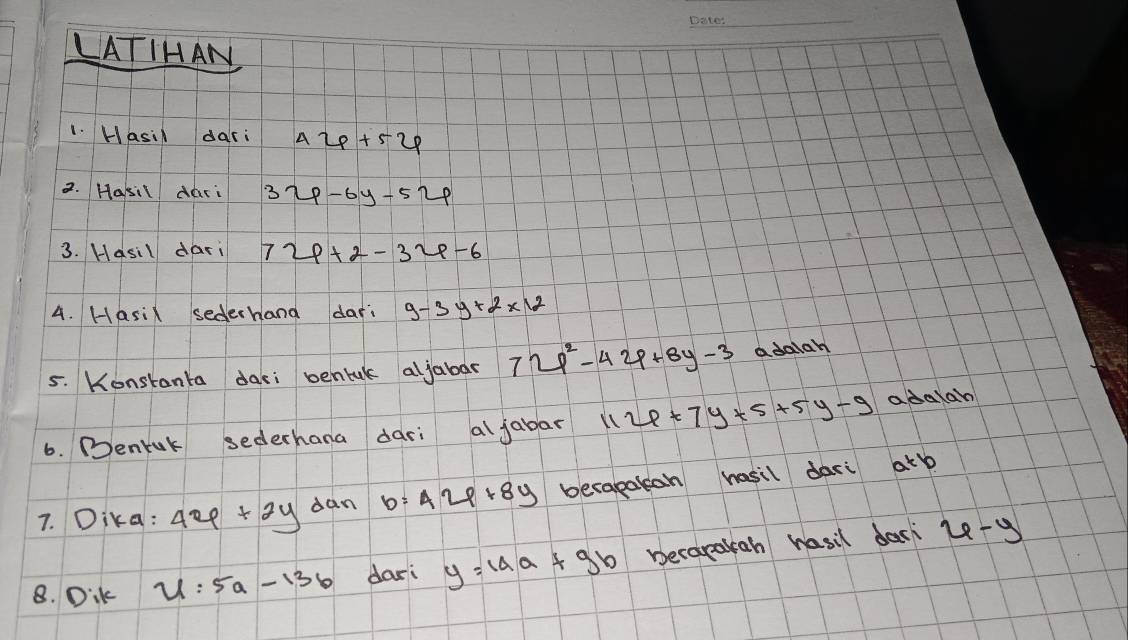 Date:
LATIHAN
1. Hasil dari 4x+5x
2. Hasil dari 3x-6y-5x
3. Hasil dari 7x+2-3x-6
4. Hasil sederhana dari 9-3y+2x12
5. Konstanta dari bentuk aljabar 7x²-4x+8y-3 adalah
6. Bentuk sederhana dari aljabar 11x+7y+5+5y-9 adalah
7. Dika: 4x+2y dan b=4x+8y berapakah hasil dari a+b
8. Dik x: 5a-13b dari y=14a+9b berapakah hasil dari x-y